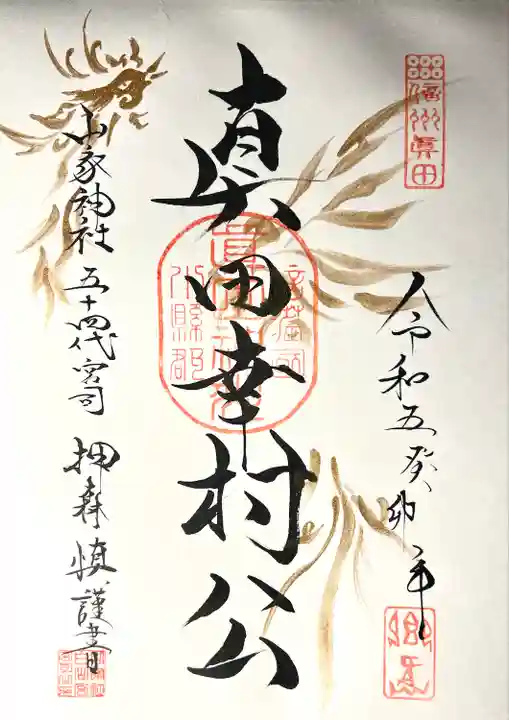 信州眞田
令和五癸卯年
真田幸村公
山家神社 五十四代宮司 押森慎謹書